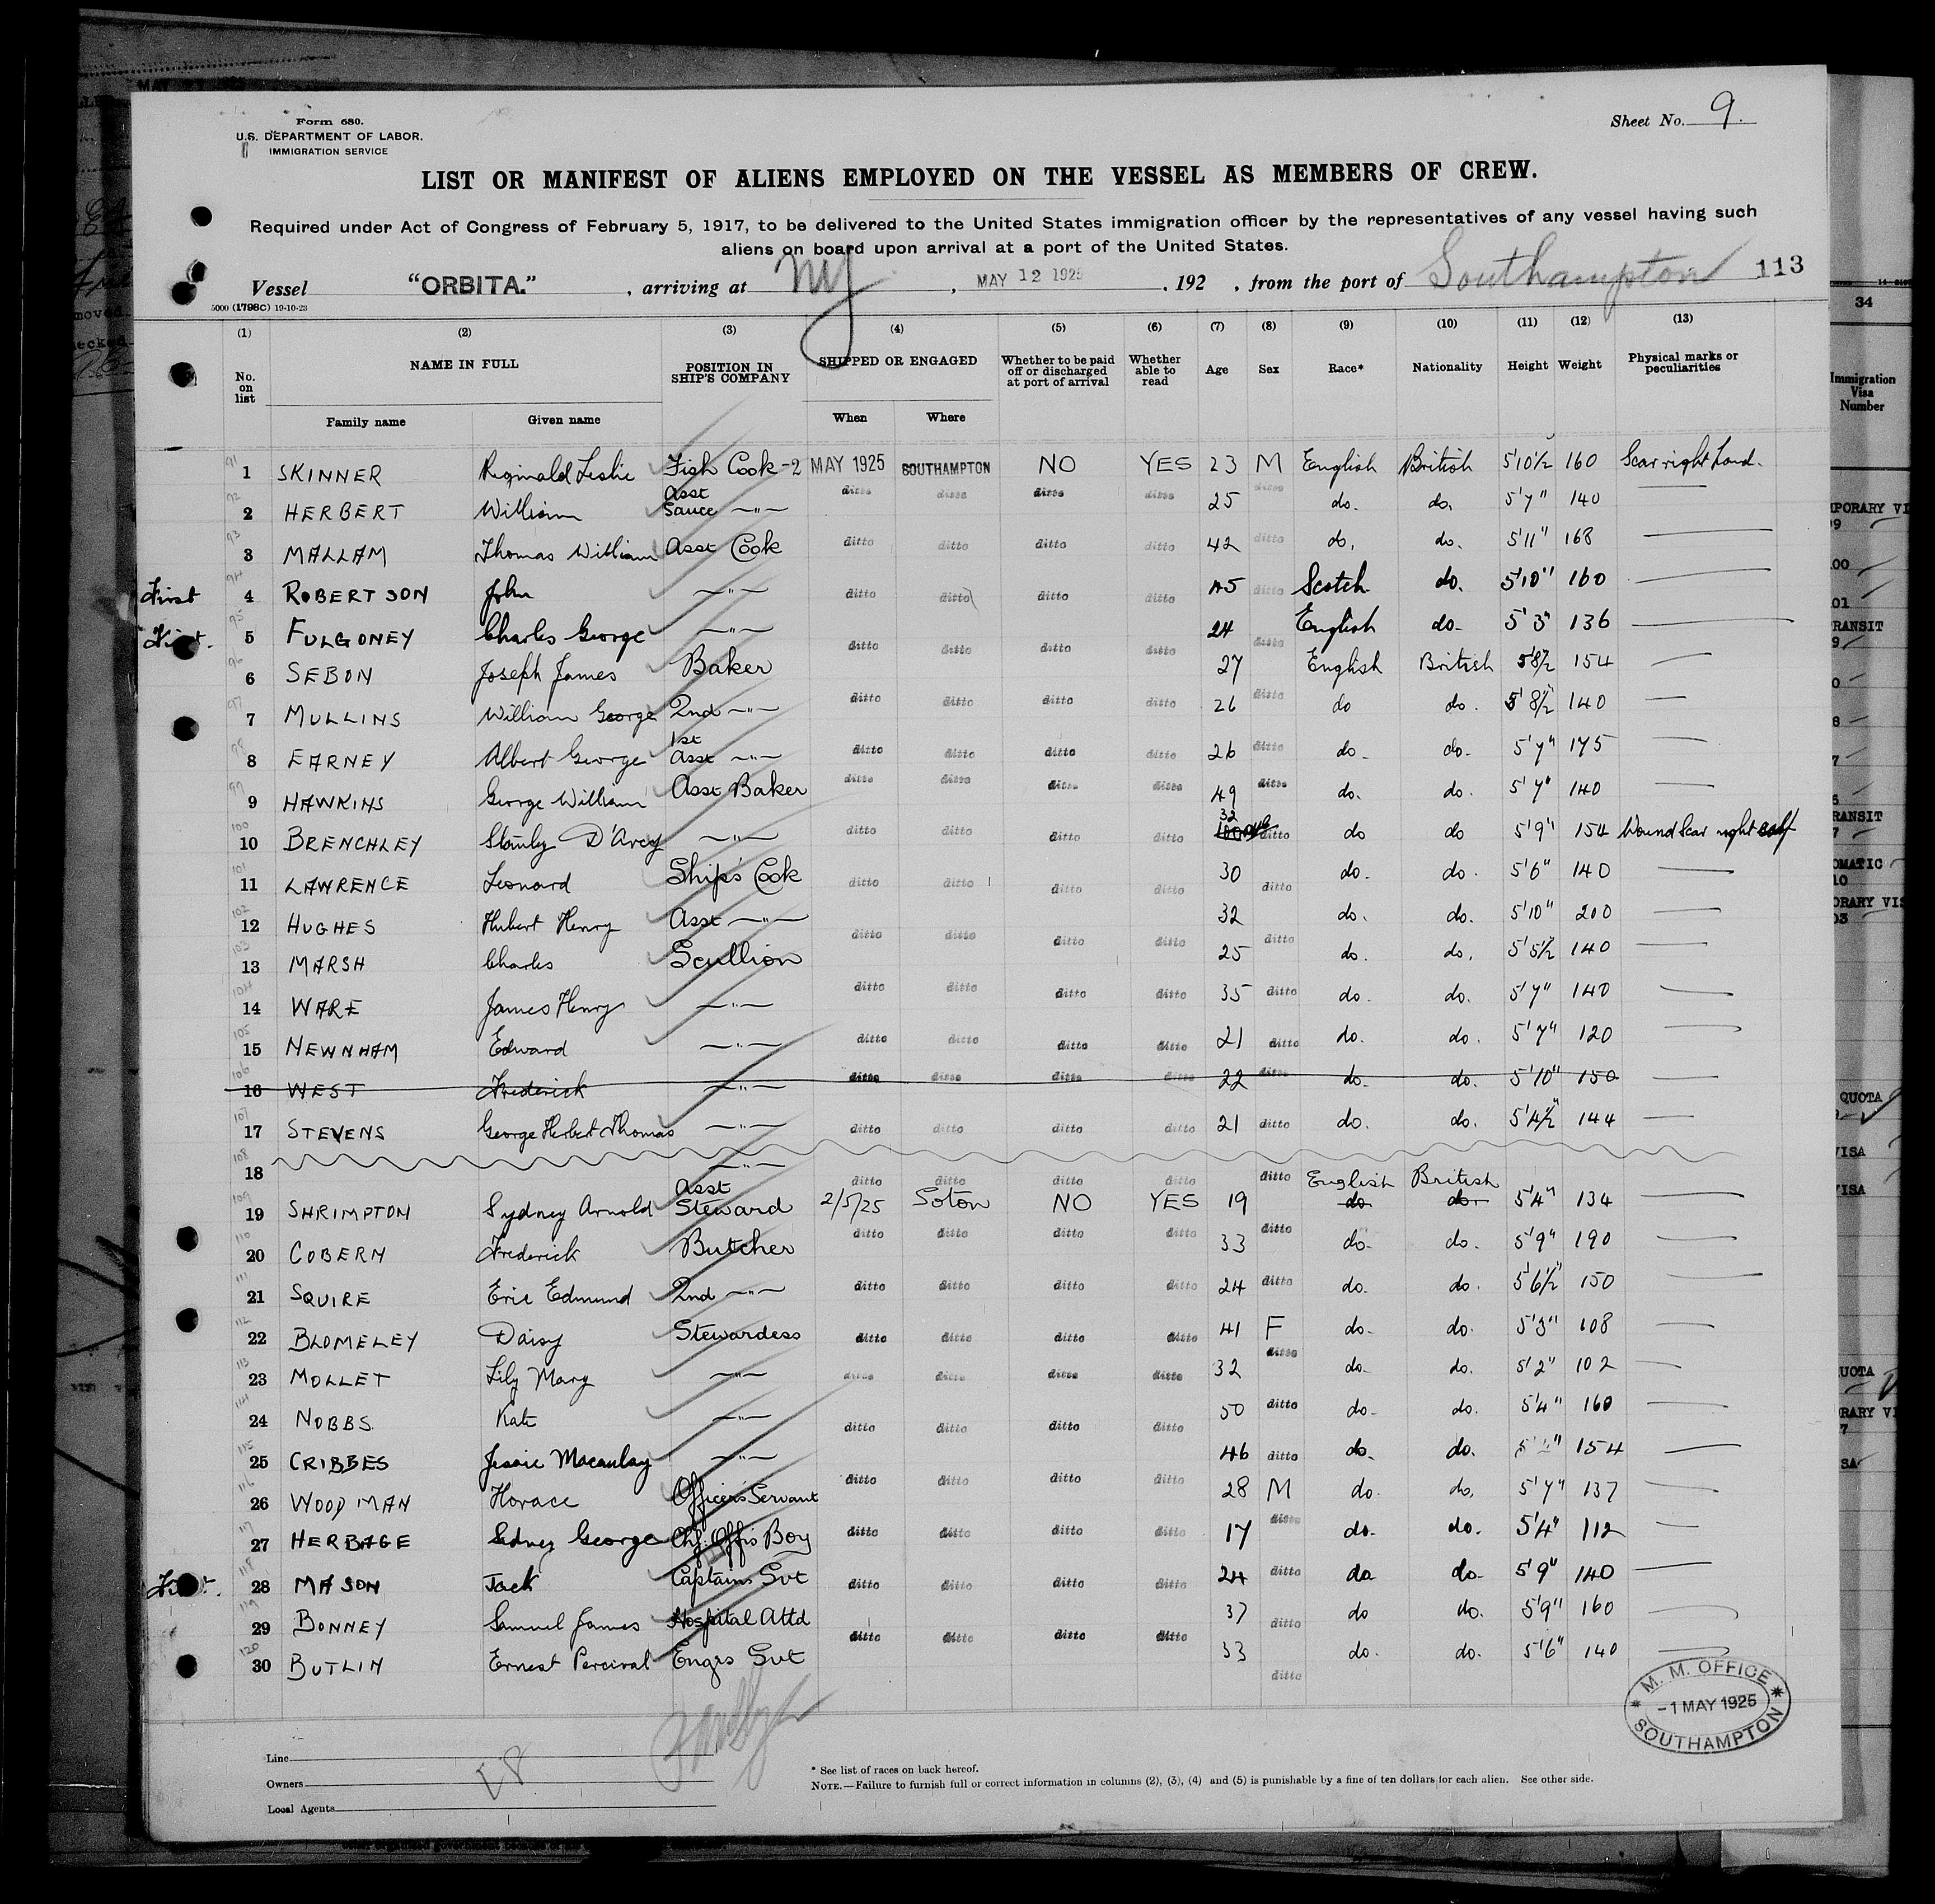 Form 680.
U.S. DEPARTMENT OF LABOR.
IMMIGRATION SERVICE
Sheet No. 9.
LIST OR MANIFEST OF ALIENS EMPLOYED ON THE VESSEL AS MEMBERS OF CREW.
Required under Act of Congress of February 5, 1917, to be delivered to the United States immigration officer by the representatives of any vessel having such
aliens on board upon arrival at a port of the United States.
Vessel "ORBITA." , arriving at NY , MAY 12 1925 , 192 , from the port of Southampton 113
5000 (1798C) 19-10-23
(1) (2) (3) (4) (5) (6) (7) (8) (9) (10) (11) (12) (13)
No. on list NAME IN FULL POSITION IN SHIP'S COMPANY SHIPPED OR ENGAGED Whether to be paid off or discharged at port of arrival Whether able to read Age Sex Race* Nationality Height Weight Physical marks or peculiarities
Family name Given name When Where
91 1 SKINNER Reginald Leslie Fish Cook -2 MAY 1925 SOUTHAMPTON NO YES 23 M English British 5'10½ 160 Scar right hand.
92 2 HERBERT William Asst Sauce —"— ditto ditto ditto ditto 25 ditto do. do. 5'7" 140 —
93 3 MALLAM Thomas William Asst Cook ditto ditto ditto ditto 42 ditto do. do. 5'11" 168 —
First 94 4 ROBERTSON John —"— ditto ditto ditto ditto 45 ditto Scotch do. 5'10" 160 —
First. 95 5 FULGONEY Charles George —"— ditto ditto ditto ditto 24 ditto English do- 5'3" 136 —
96 6 SEBON Joseph James Baker 27 English British 5'8½ 154 —
97 7 MULLINS William George 2nd —"— ditto ditto ditto ditto 26 ditto do do. 5'8½" 140 —
98 8 EARNEY Albert George 1st Asst —"— ditto ditto ditto ditto 26 ditto do- do- 5'7" 175 —
99 9 HAWKINS George William Asst Baker ditto ditto ditto ditto 49 ditto do. do. 5'7" 140 —
100 10 BRENCHLEY Stanley D'Arcy —"— ditto ditto ditto ditto 32 ditto do do 5'9" 154 Wound Scar right calf
101 11 LAWRENCE Leonard Ship's Cook ditto ditto ditto ditto 30 ditto do. do. 5'6" 140 —
102 12 HUGHES Hubert Henry Asst —"— ditto ditto ditto ditto 32 ditto do. do. 5'10" 200 —
103 13 MARSH Charles Scullion 25 do. do. 5'5½ 140 —
104 14 WARE James Henry —"— ditto ditto ditto ditto 35 ditto do. do. 5'7" 140 —
105 15 NEWNHAM Edward —"— ditto ditto ditto ditto 21 ditto do. do. 5'7" 120 —
106 16 WEST Frederick —"— ditto ditto ditto ditto 22 ditto do. do. 5'10" 150 —
107 17 STEVENS George Herbert Thomas —"— ditto ditto ditto ditto 21 ditto do. do. 5'4½" 144 —
108 18 —"— ditto ditto ditto ditto ditto
109 19 SHRIMPTON Sydney Arnold Asst Steward 2/5/25 Soton NO YES 19 English do British do. 5'4" 134 —
110 20 COBERN Frederick Butcher ditto ditto ditto ditto 33 ditto do- do. 5'9" 190 —
111 21 SQUIRE Eric Edmund 2nd —"— ditto ditto ditto ditto 24 ditto do. do. 5'6½" 150 —
112 22 BLOMELEY Daisy Stewardess ditto ditto ditto ditto 41 F do- do. 5'3" 108 —
113 23 MOLLET Lily Mary —"— ditto ditto ditto ditto 32 ditto do. do. 5'2" 102 —
114 24 NOBBS. Kate —"— ditto ditto ditto ditto 50 ditto do- do. 5'4" 160 —
115 25 CRIBBES Jessie Macaulay —"— 46 ditto do. do. 154 —
116 26 WOODMAN Horace Officers Servant ditto ditto ditto ditto 28 M do. do. 5'7" 137 —
117 27 HERBAGE Sidney George Chf. Offrs Boy ditto ditto ditto ditto 17 ditto do- do. 5'4" 112 —
First. 118 28 MASON Jack Captains Svt ditto ditto ditto ditto 24 ditto do do- 5'9" 140 —
119 29 BONNEY Samuel James Hospital Attd 37 ditto do do. 5'9" 160 —
120 30 BUTLIN Ernest Percival Engrs Svt ditto ditto ditto ditto 33 ditto do. do. 5'6" 140 —
M. M. OFFICE
-1 MAY 1925
SOUTHAMPTON
Line
Owners
Local Agents
* See list of races on back hereof.
NOTE.—Failure to furnish full or correct information in columns (2), (3), (4) and (5) is punishable by a fine of ten dollars for each alien. See other side.
34
Immigration
Visa
Number
RANSIT
QUOTA
VISA